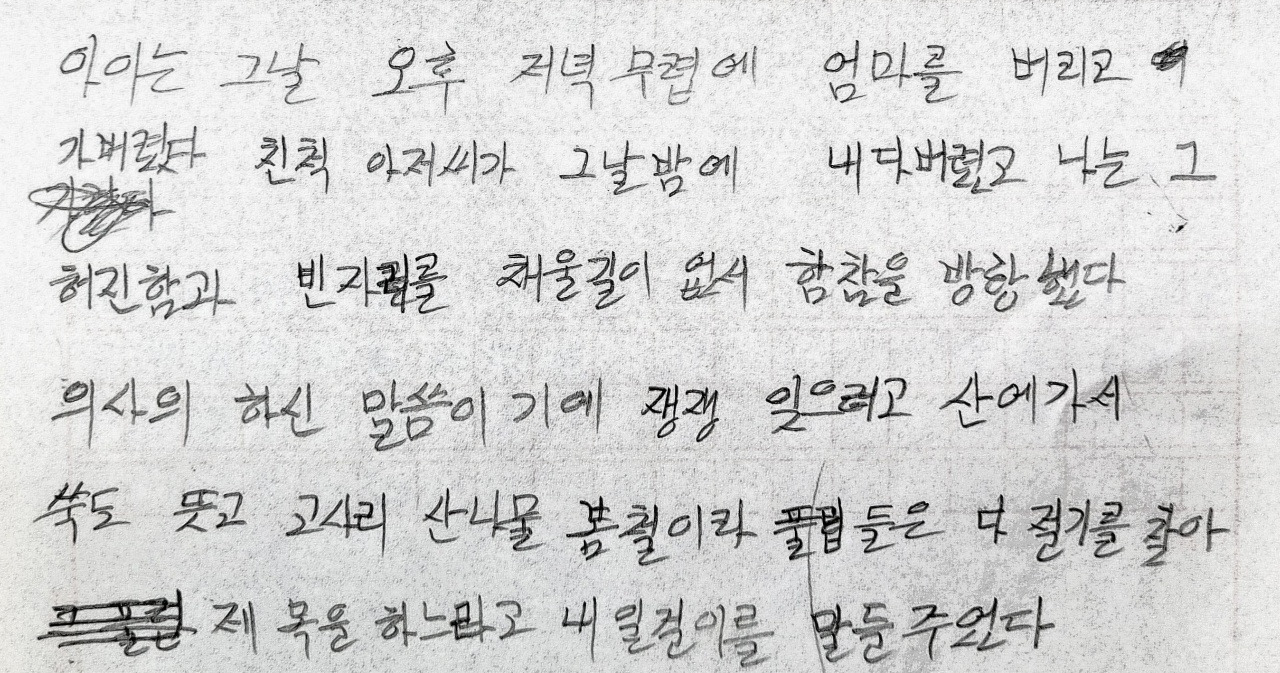 아아는 그날 오후 저녁 무렵에 엄마를 버리고
가버렸다 친척 아저씨가 그날밤에 내다버렸고 나는 그
허진함과 빈자리를 채울길이 없서 함참을 방항했다
의사의 하신 말씀이 기에 쟁쟁 잊으려고 산에가서
쑥도 뜻고 고사리 산나물 봄철이라 풀립들은 다 절기를 찾아
제 목을 하느라고 내 일걸이를 말둔주었다